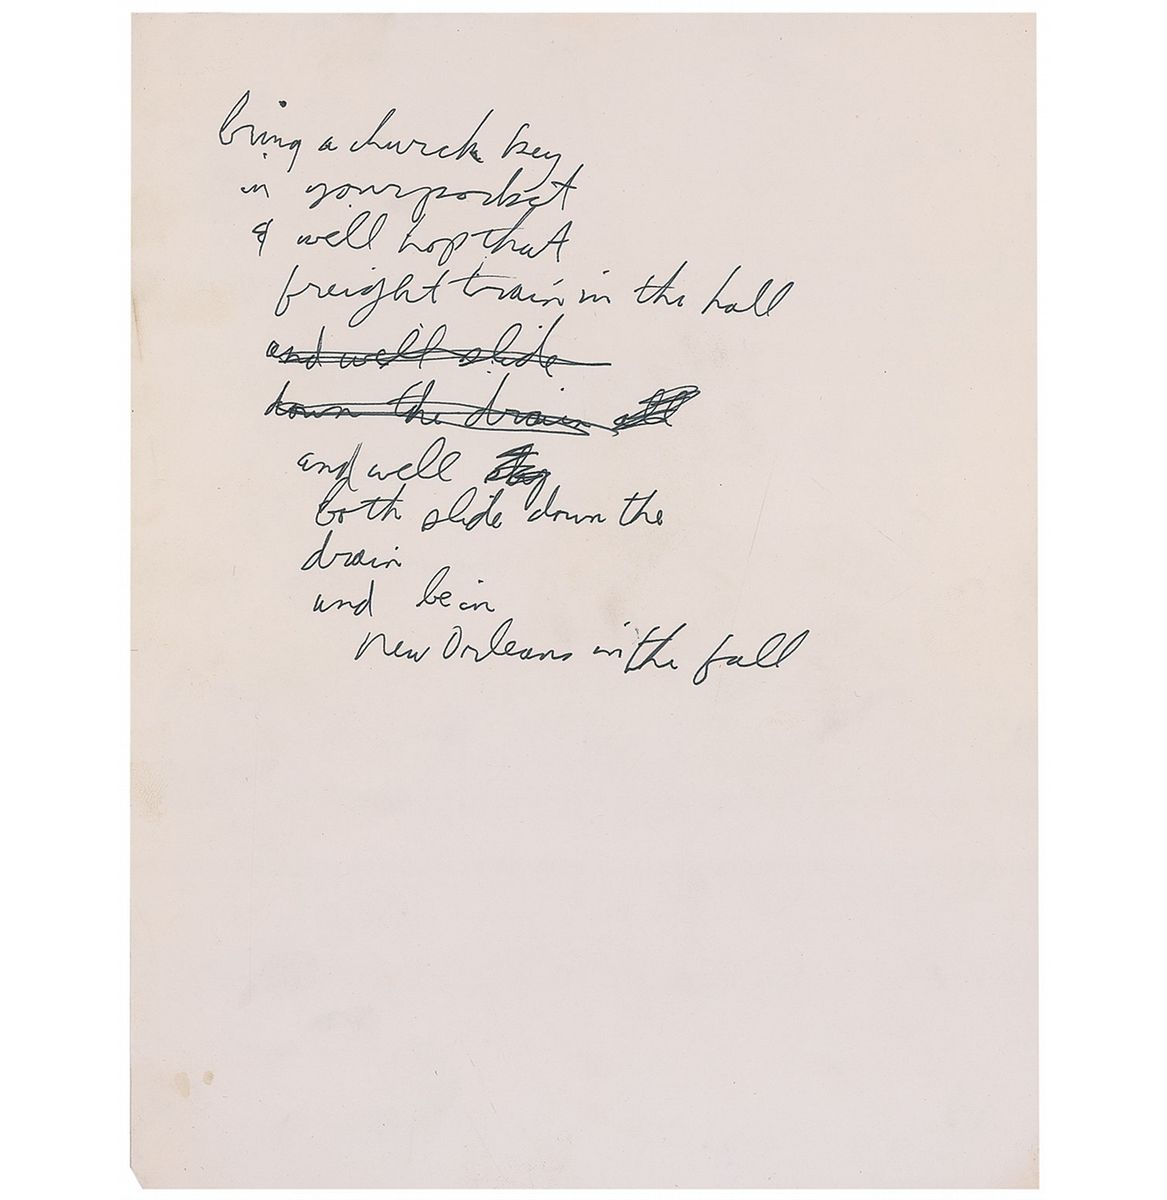 bring a church key
in your pocket
& well hop that
freight train in the hall
and we'll slide
down the drain
and well
both slide down the
drain
and be in
new Orleans in the fall